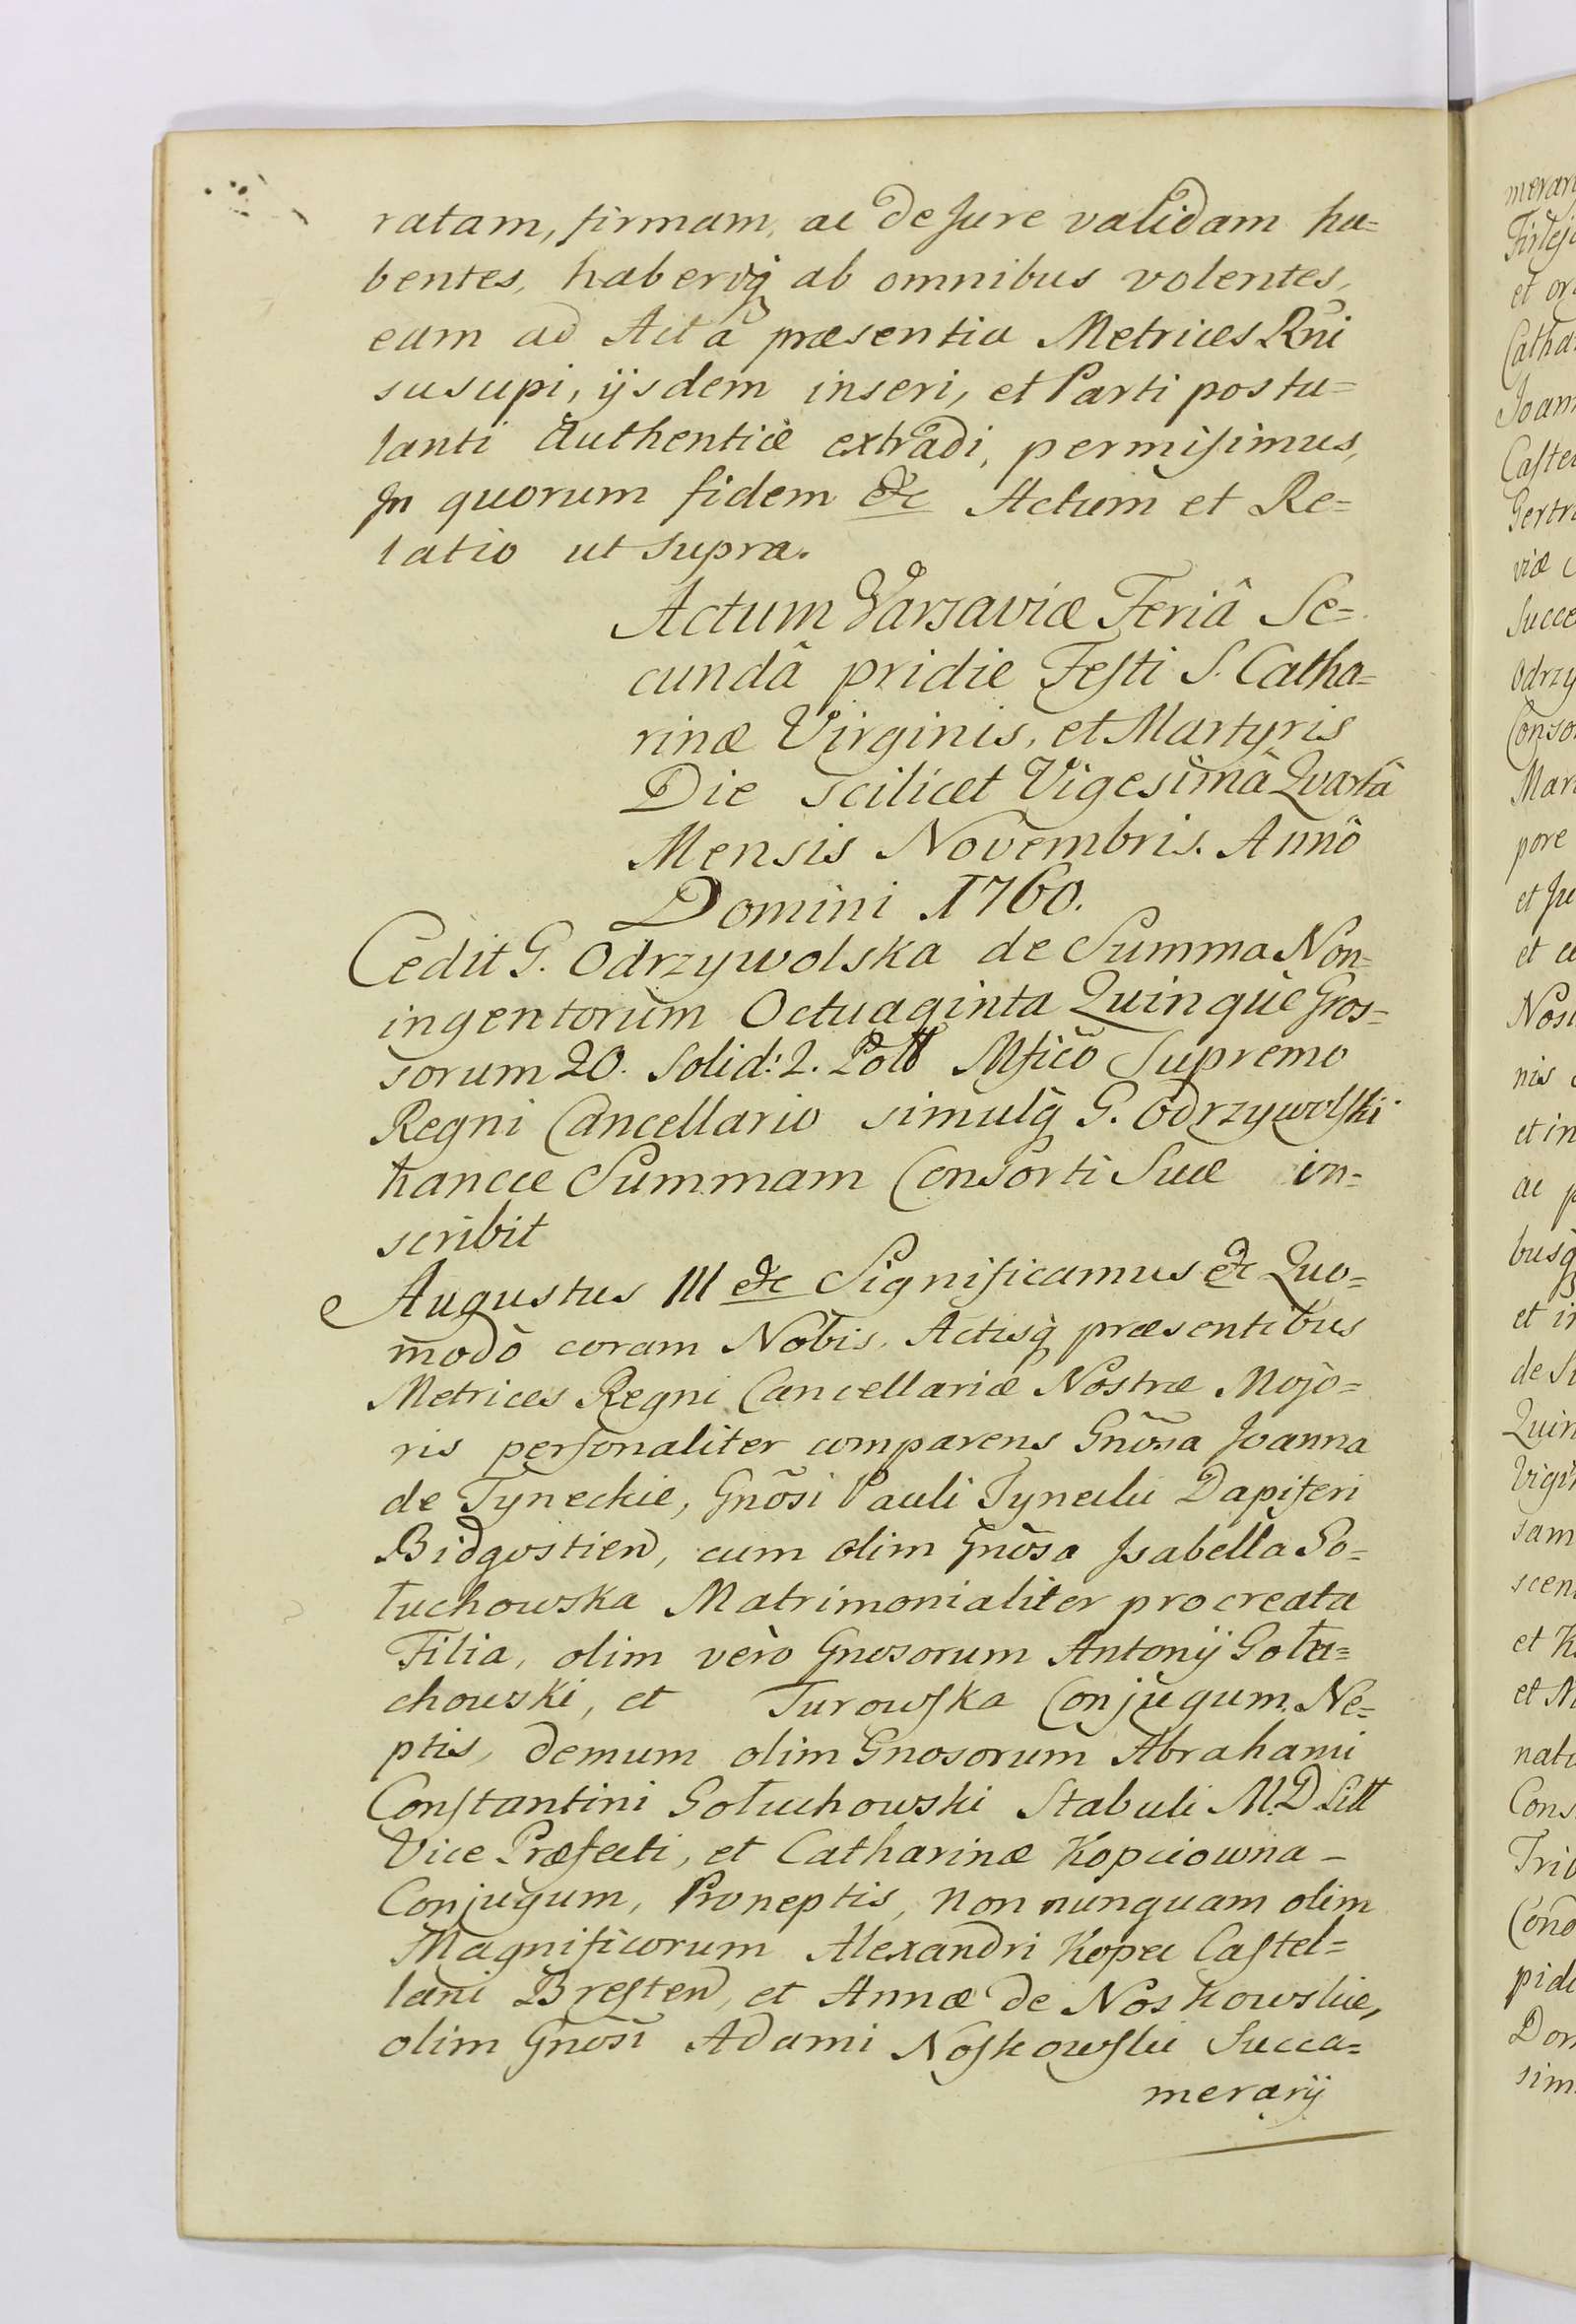 ratam, firmam, ac de Jure validam ha=
bentes, haberiq̃ ab omnibus volentes,
eam ad Acta præsentia Metrices Rñi
suscipi, ijsdem inseri, et Parti postu=
lanti authenticè extradi, permisimus,
In quorum fidem &c Actum et Re=
latio ut supra.
Actum Varsaviæ Feriâ Se=
cundâ pridie Festi S. Catha=
rinæ Virginis, et Martyris
Die scilicet Vigesimâ Qvartâ
Mensis Novembris. Annô
Domini 1760.
Cedit G. Odrzywolska de Summa Non=
ingentorum Octuaginta Quinque Gros=
sorum 20. Solid: 2. Poll Mfico Supremo
Regni Cancellario simulq̃ G. Odrzywolski
hancce Summam Consorti Suæ in=
scribit
Augustus III &c Significamus &c Quo=
modò coram Nobis, Actisq̃ præsentibus
Metrices Regni Cancellariæ Nostræ Majo=
ris personaliter comparens Gnõsa Joanna
de Tyneckie, Gnõsi Pauli Tynecki Dapiferi
Bidgostien, cum olim Gnõsa Isabella Go=
łuchowska Matrimonialiter procreata
Filia, olim verò Gnosorum Antonij Gołu=
chowski, et Turowska Conjugum. Ne=
ptis, demum olim Gnosorum Abrahami
Constantini Gołuchowski Stabuli M.D Litt
Vice Præfecti, et Catharinæ Kopciowna –
Conjugum, Proneptis, non nunquam olim
Magnificorum Alexandri Kopec Castel=
lani Bresten, et Annæ de Noskowskie,
olim Gnõsi Adami Noskowski Succa=
merarij